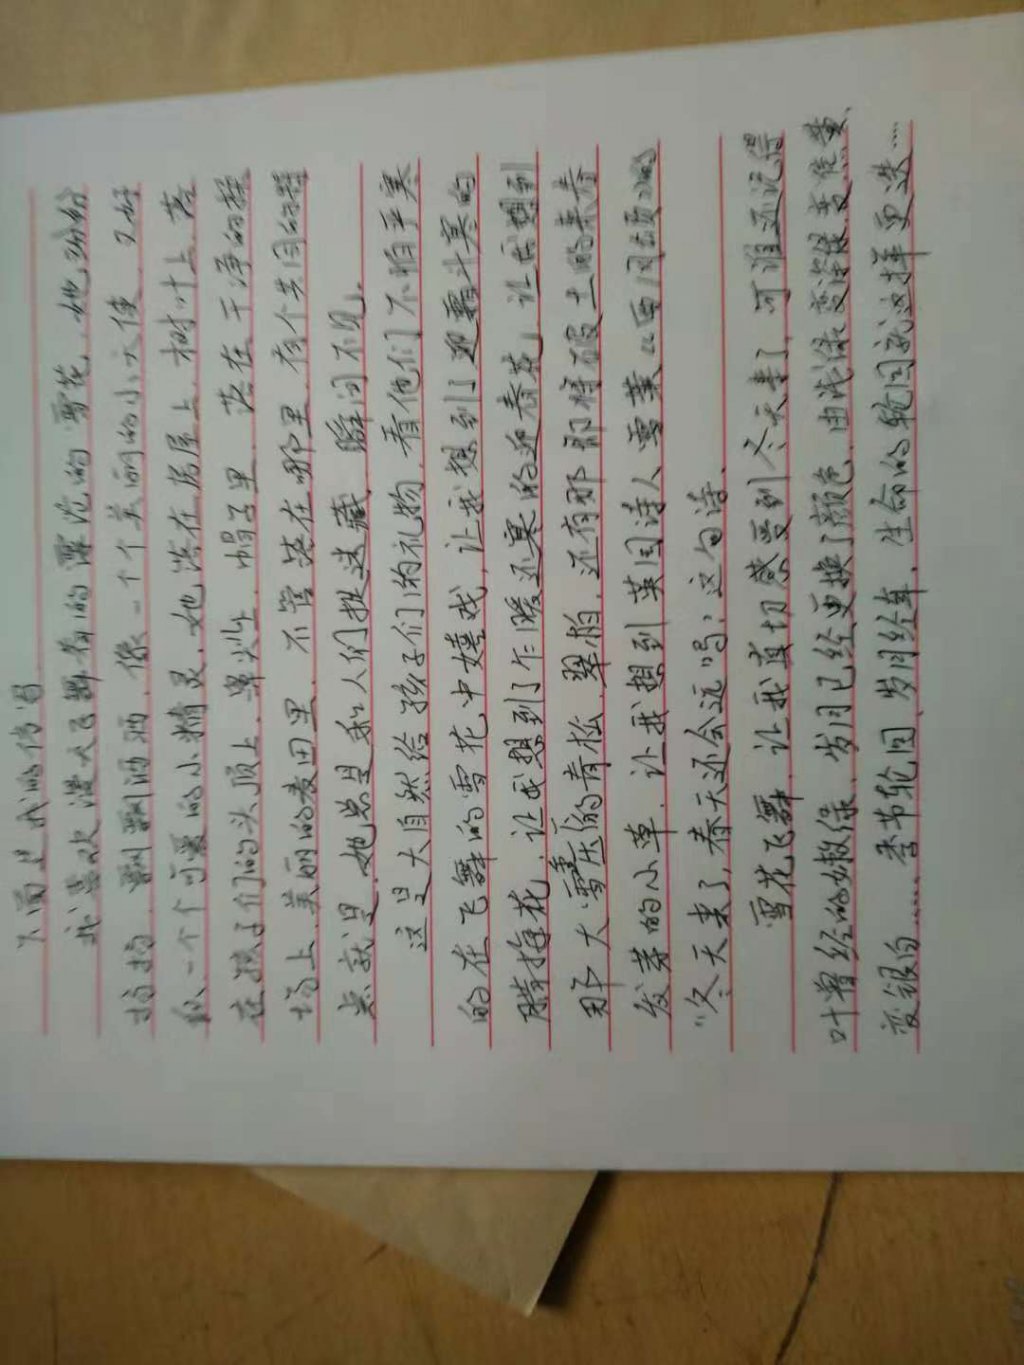 下面是我的仿写
我喜欢漫天飞舞着的雪花,她纷纷
扬扬、飘飘洒洒,像一个个美丽的小天使,又好
似一个个可爱的小精灵,她落在房屋上,树叶上,落
在孩子们的头顶上,鼻尖上,帽子里,落在干净的操
场上,美丽的麦田里,不管落在哪里,有个共同的特
点就是,她总是和人们捉迷藏,瞬间不见。
这是大自然给孩子们的礼物,看他们不怕严寒
的在飞舞的雪花中嬉戏,让我想到了迎霜斗寒的
腊梅花,让我想到了乍暖还寒的迎春花,让我想到
那大雪压的青松,翠柏,还有那即将破土的来春
发芽的小草,让我想到英国诗人雪莱《西风颂》的
“冬天来了,春天还会远吗?”这句诗。
雪花飞舞,让我真切感受到冬天来了,可谁还记得
叶曾经的嫩绿,岁月已经更换了颜色,由浅绿变深绿变焦黄,
变银白……,季节轮回,岁月经年,生命的轮回就这样更迭……